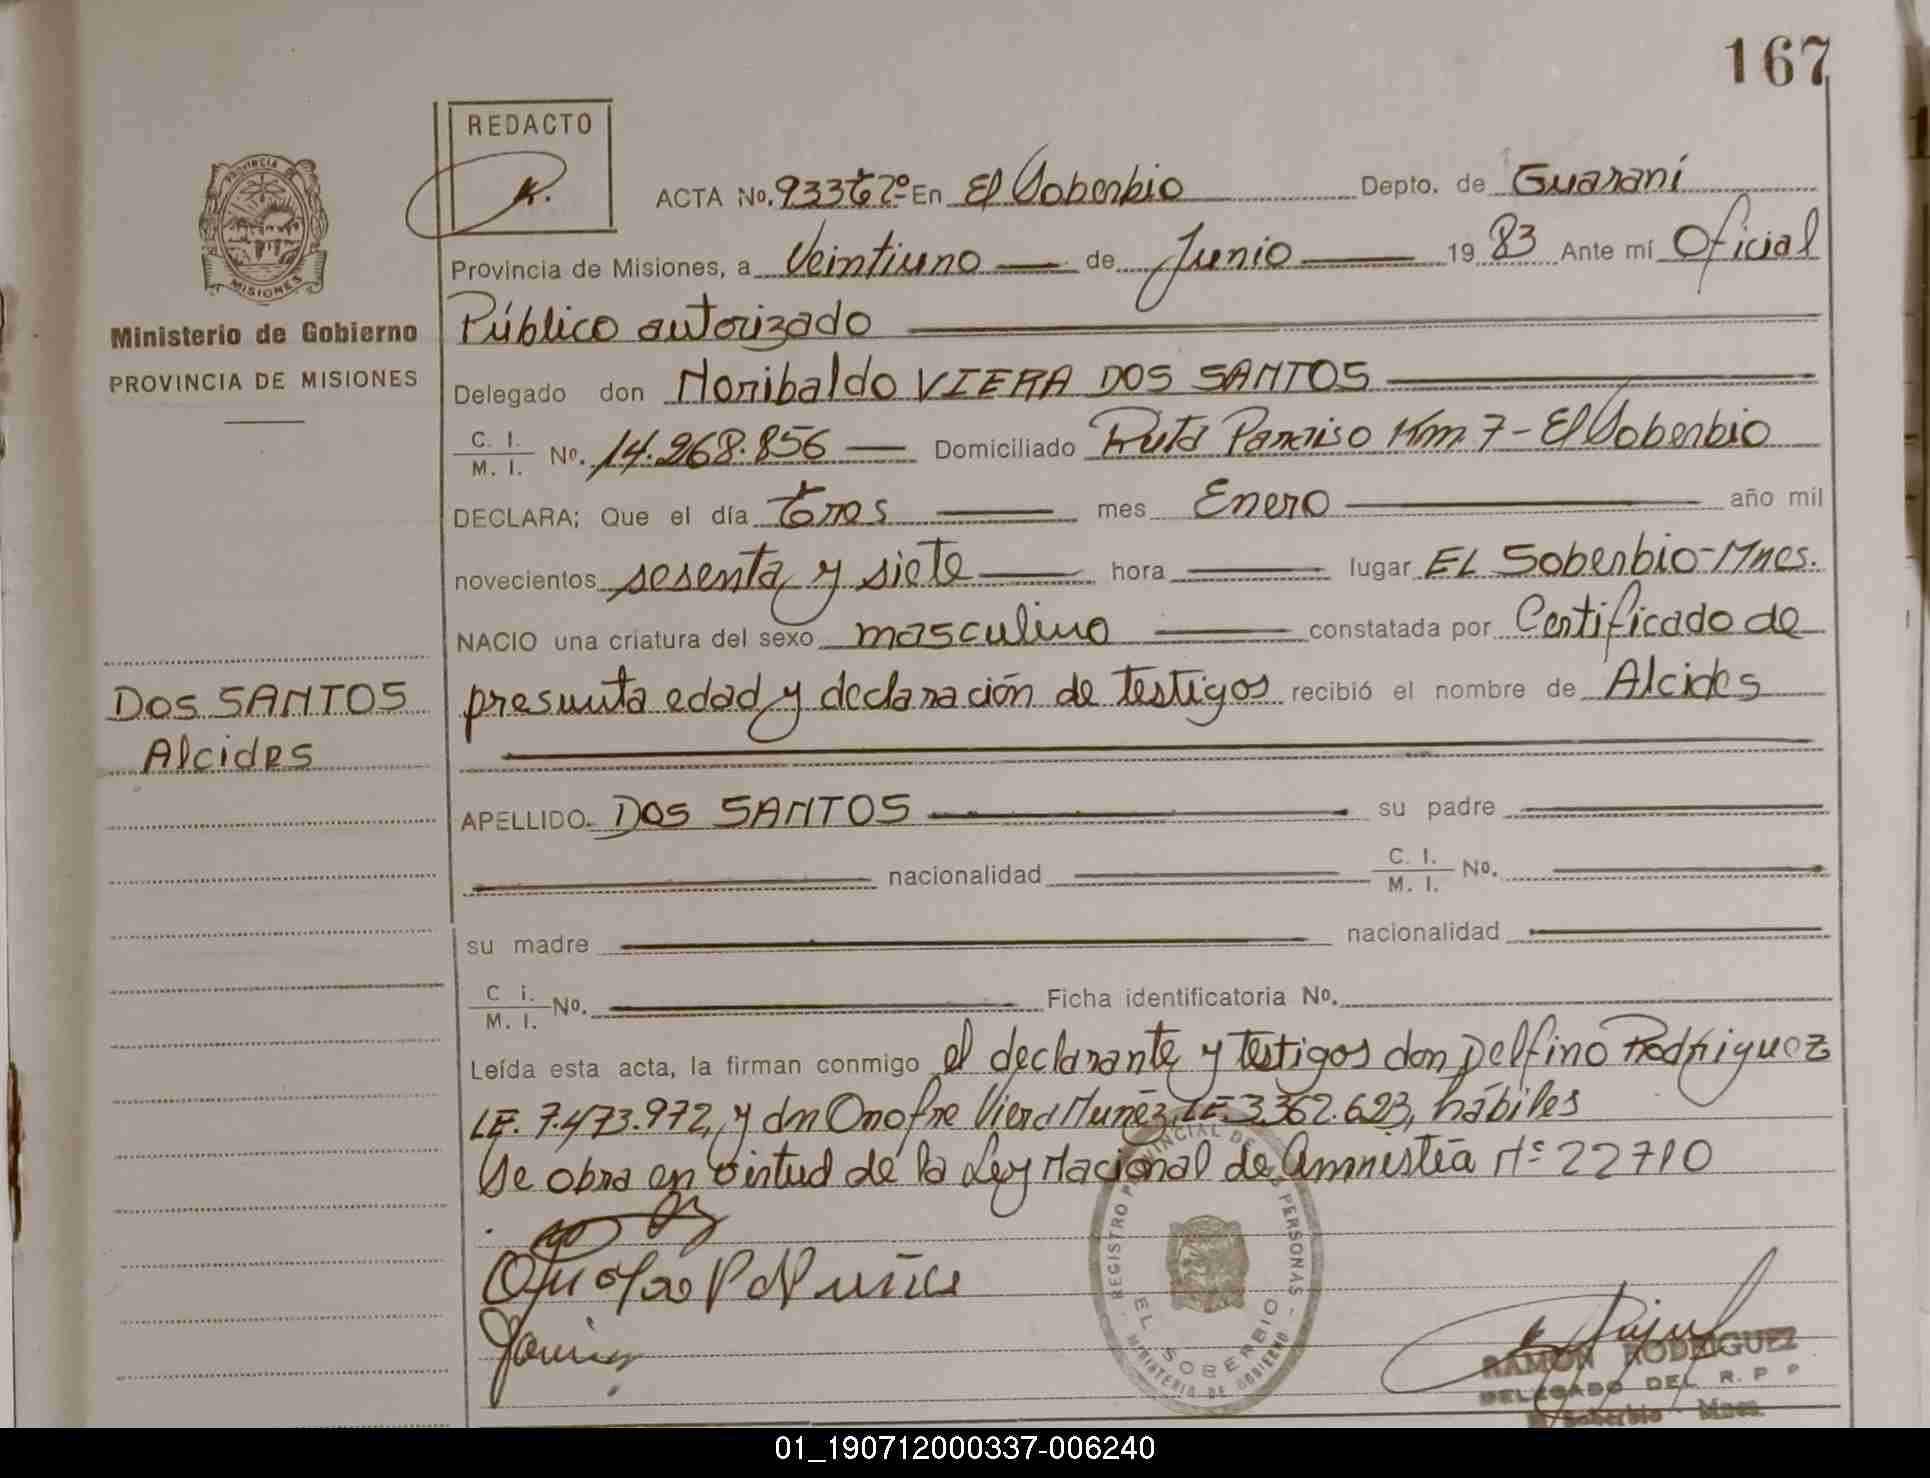 167
REDACTO
ACTA No. 933 Tº 2º En El Soberbio Depto. de Guaraní
Provincia de Misiones, a Veintiuno de Junio 19 83 Ante mí Oficial
Público autorizado
Delegado don Noribaldo VIERA DOS SANTOS
C. I. / M. I. No. 14.268.856 Domiciliado Ruta Paraiso Km 7 - El Soberbio
DECLARA: Que el día tres mes Enero año mil
novecientos sesenta y siete hora lugar EL Soberbio - Mnes.
NACIO una criatura del sexo masculino constatada por Certificado de
presunta edad y declaración de testigos recibió el nombre de Alcides
APELLIDO. DOS SANTOS su padre
nacionalidad C. I. / M. I. No.
su madre nacionalidad
C i. / M. I. No. Ficha identificatoria No.
Leída esta acta, la firman conmigo el declarante y testigos don Delfino Rodriguez
LE. 7.473.972, y dn Onofre Viera Nuñez, LE 3.362.623, hábiles
Se obra en virtud de la Ley Nacional de Amnistía Nº 22710
PROVINCIA
MISIONES
Ministerio de Gobierno
PROVINCIA DE MISIONES
DOS SANTOS
Alcides
REGISTRO PROVINCIAL DE LAS PERSONAS
EL SOBERBIO
MINISTERIO DE GOBIERNO
RAMON RODRIGUEZ
DELEGADO DEL R. P. P
El Soberbio - Mnes.
01_190712000337-006240